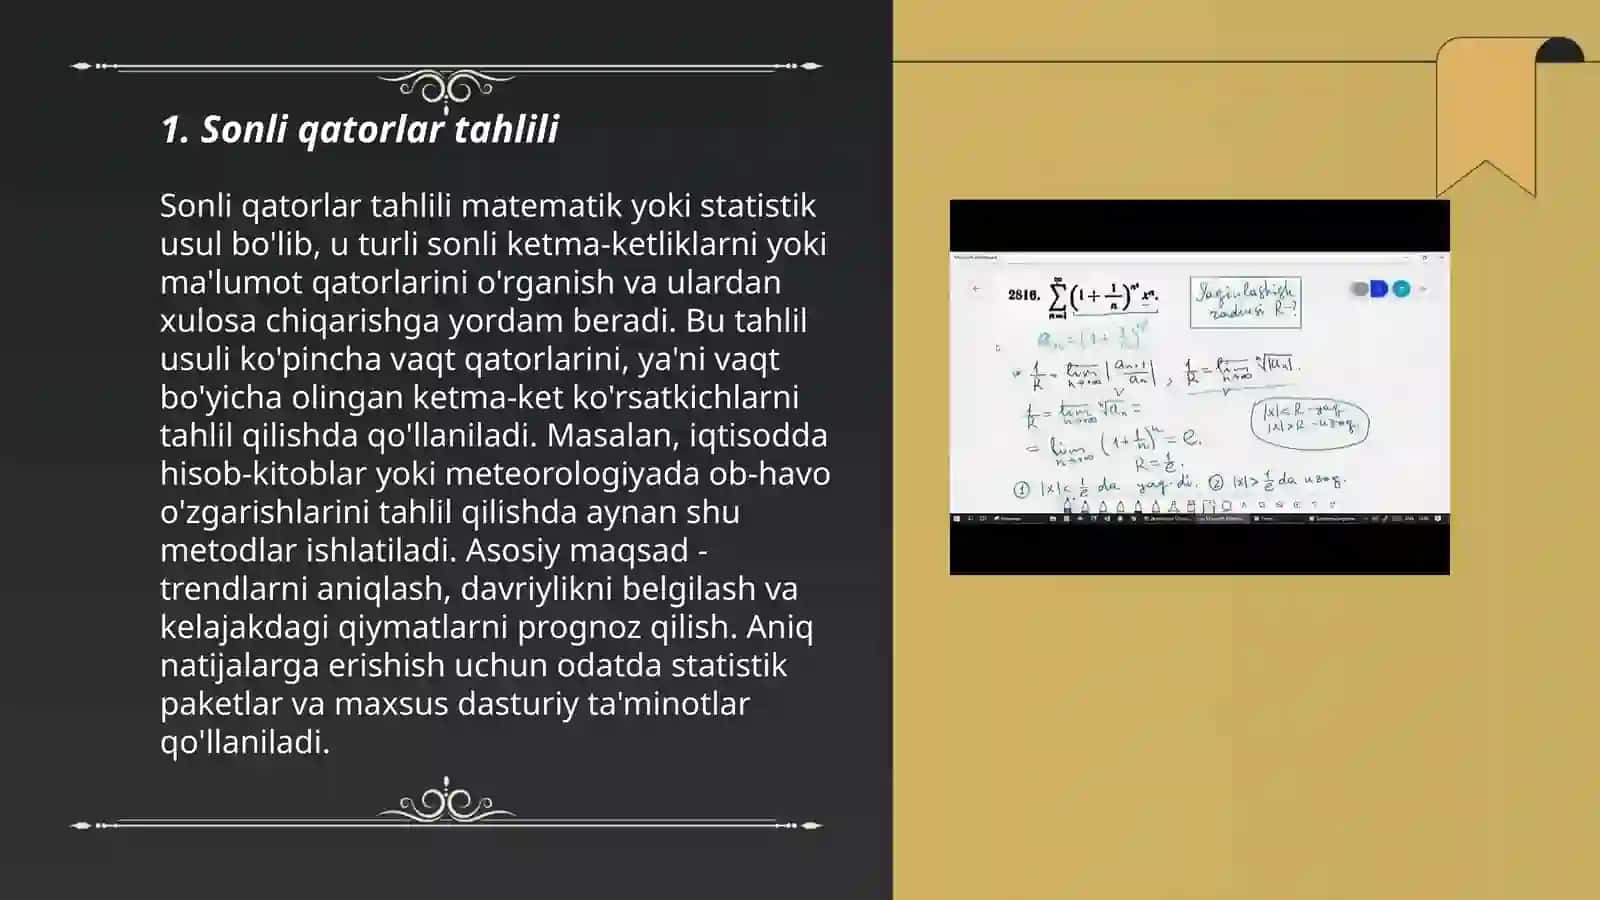 1. Sonli qatorlar tahlili
Sonli qatorlar tahlili matematik yoki statistik
usul bo'lib, u turli sonli ketma-ketliklarni yoki
ma'lumot qatorlarini o'rganish va ulardan
xulosa chiqarishga yordam beradi. Bu tahlil
usuli ko'pincha vaqt qatorlarini, ya'ni vaqt
bo'yicha olingan ketma-ket ko'rsatkichlarni
tahlil qilishda qo'llaniladi. Masalan, iqtisodda
hisob-kitoblar yoki meteorologiyada ob-havo
o'zgarishlarini tahlil qilishda aynan shu
metodlar ishlatiladi. Asosiy maqsad -
trendlarni aniqlash, davriylikni belgilash va
kelajakdagi qiymatlarni prognoz qilish. Aniq
natijalarga erishish uchun odatda statistik
paketlar va maxsus dasturiy ta'minotlar
qo'llaniladi.
2816. ∑ n=1 ∞ (1 + 1/n)^n² xⁿ.
Yaqinlashish
radiusi R-?
1/R = lim n→∞ |aₙ₊₁/aₙ|, 1/R = lim n→∞ ⁿ√|aₙ|.
1/R = lim n→∞ ⁿ√aₙ =
|x|<R - yaq.
|x|>R - uzoq.
= lim n→∞ (1 + 1/n)ⁿ = e.
R = 1/e.
① |x|< 1/e da yaq-di. ② |x|> 1/e da uzoq.